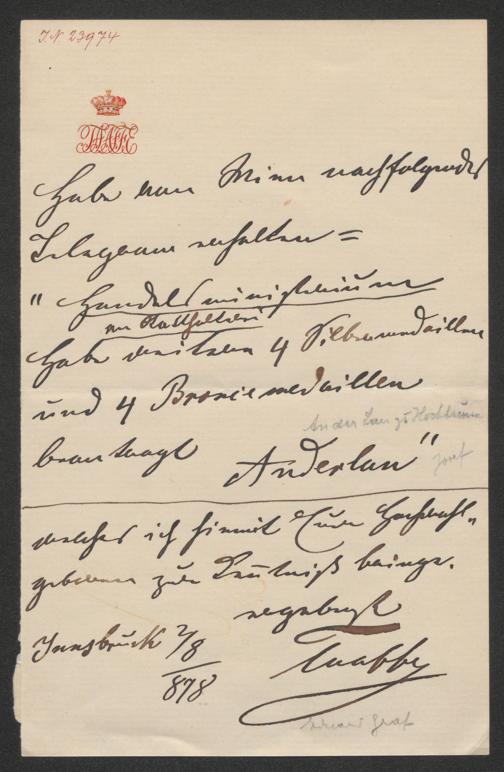 I.N. 23974
TAAFFE
Habe von Wien nachfolgendes
Telegramm erhalten =
" Handelsministerium
an Statthalterei
Habe weitere 4 Silbermedaillen
und 4 Broncemedaillen
An der Lan zu Hochbrunn
Josef
beantragt Anderlan"
welches ich hiemit Euer Hochwohl„
geboren zur Kenntniß bringe.
ergebenst
Innsbruck 2/8
878
Taaffe
Eduard Graf